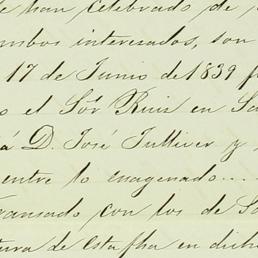 e han celebrado de
ambos interesados, son
17 de Junio de 1839 f
o el Sor. Ruiz en Sa
á D. José Tulliver y
entre lo enagenado....
transado con los de So
tura de esta fha en dich